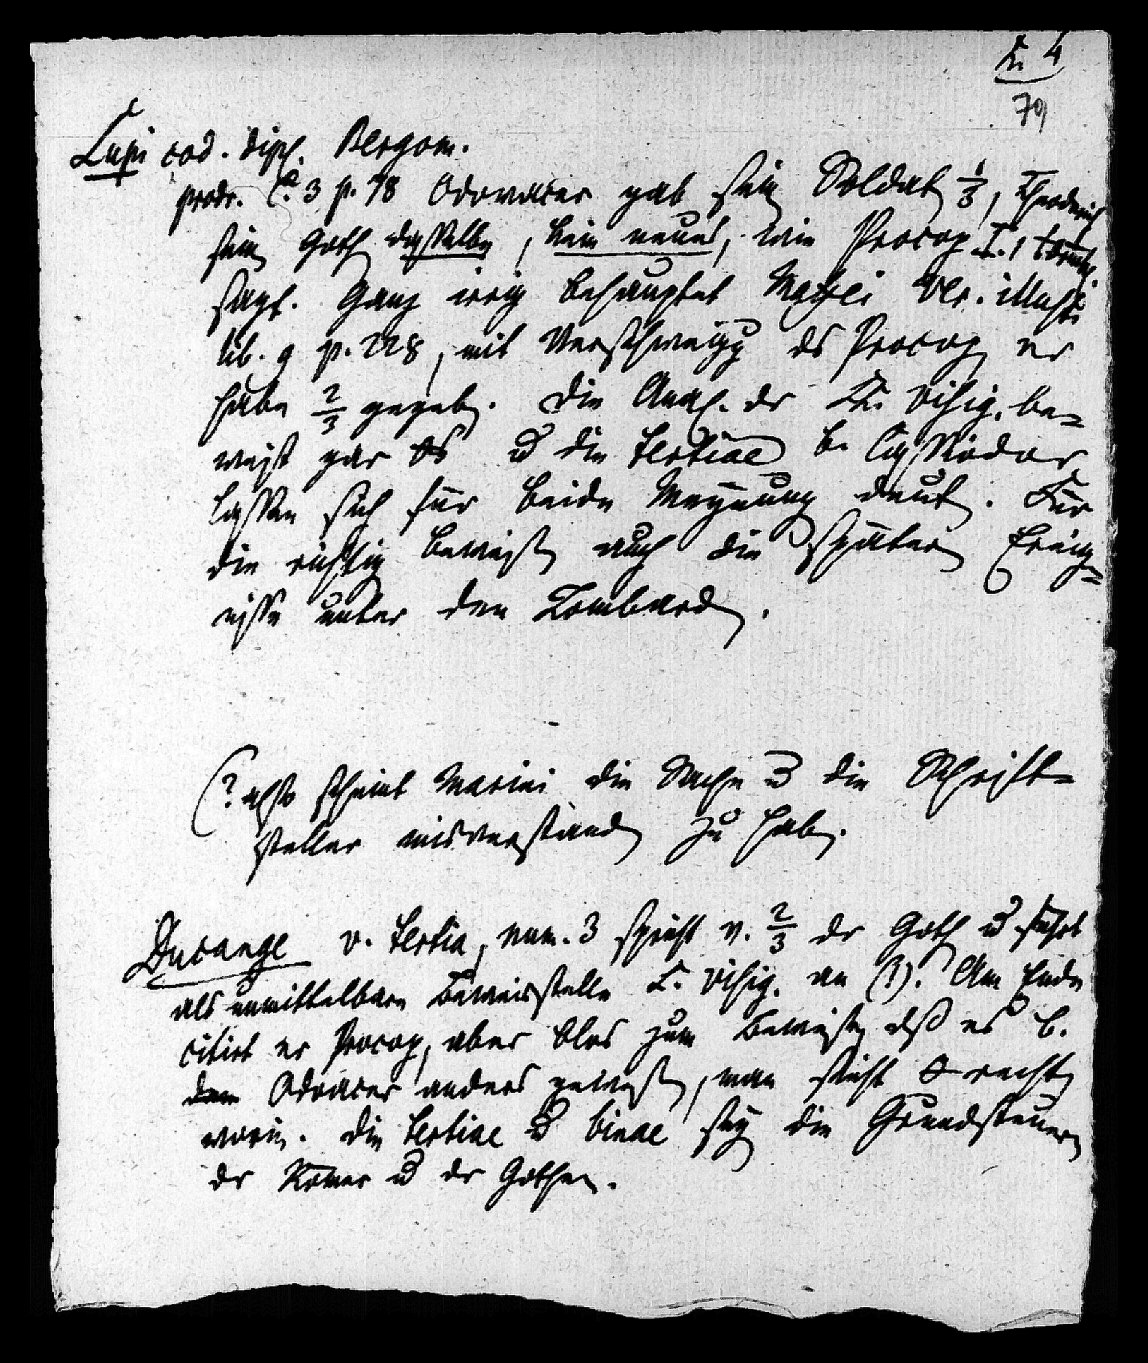 4
79
Lupi cod. dipl. Bergom.
prodr. C. 3 p. 78 Odovacer gab sein Soldat 1/3, Theoderich
sein Goth dasselbe, kein neues, wie Procop I. 1
sagt. Ganz irrig behauptet Maffei Ver. illustr.
lib. 9 p. 228, mit Verschweigg ds Procop er
habe 2/3 gegeb. Die Anal. dr LL. Visig. be=
weist gar und die tertiae b. Cassiodor
lassen sich für beide Meynung deut. Für
die richtig beweist auch die später Ereig=
nisse unter den Lombard.
(? also scheint Marini die Sache u die Schrift=
steller misverstand zu hab.
Ducange v. tertia, num. 3 spricht v. 2/3 dr Goth u führt
als unmittelbare Beweisstelle L. Visig. an (?). Am Ende
citirt er Procop, aber blos zum Beweise dß es b.
Odoacer anders gewes, man sieht recht
worin. Die tertiae u binae sey die Grundsteuern
dr Römer u dr Gothen.